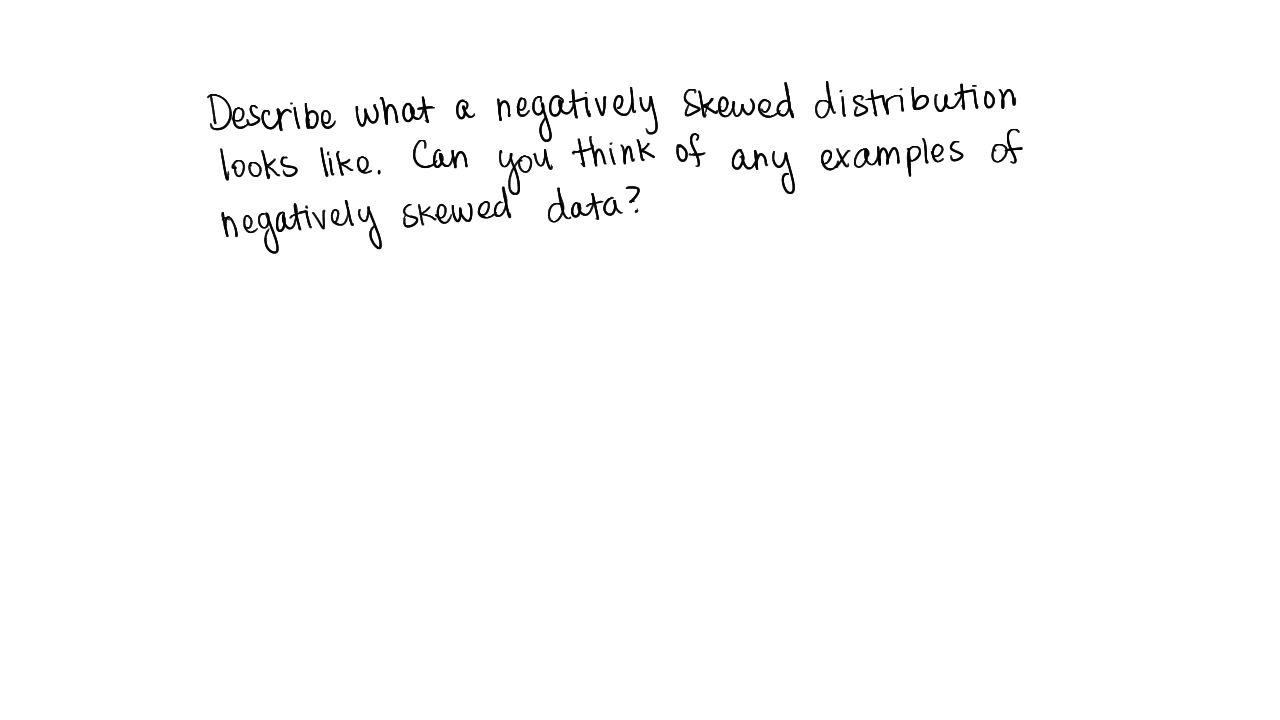 Describe what a negatively skewed distribution
looks like. Can you think of any examples of
negatively skewed data?